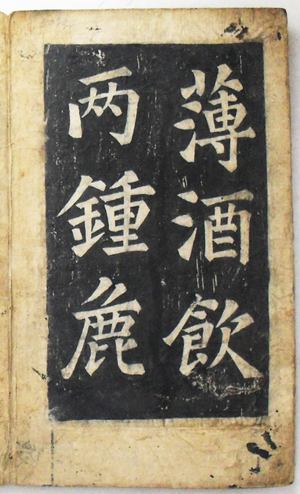 薄酒飲
两鍾麁